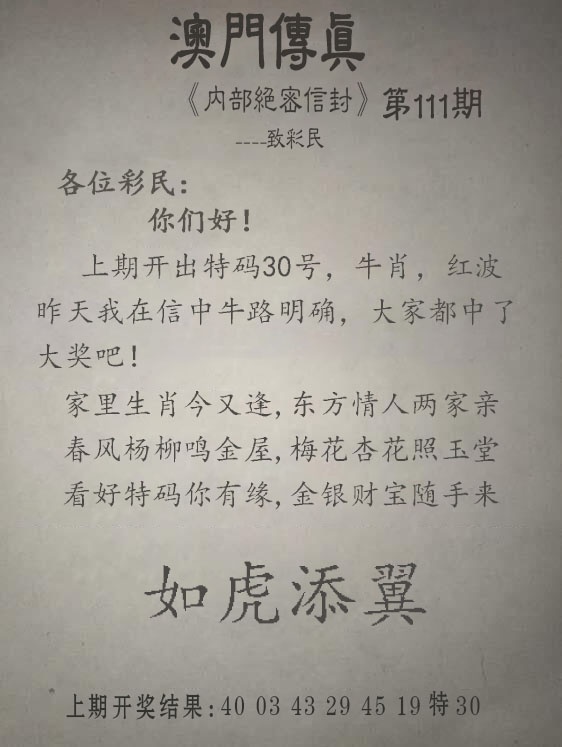 澳門傳眞
《内部絕密信封》第111期
----致彩民
各位彩民：
你们好！
上期开出特码30号，牛肖，红波
昨天我在信中牛路明确，大家都中了
大奖吧！
家里生肖今又逢,东方情人两家亲
春风杨柳鸣金屋,梅花杏花照玉堂
看好特码你有缘,金银财宝随手来
如虎添翼
上期开奖结果:40 03 43 29 45 19特30